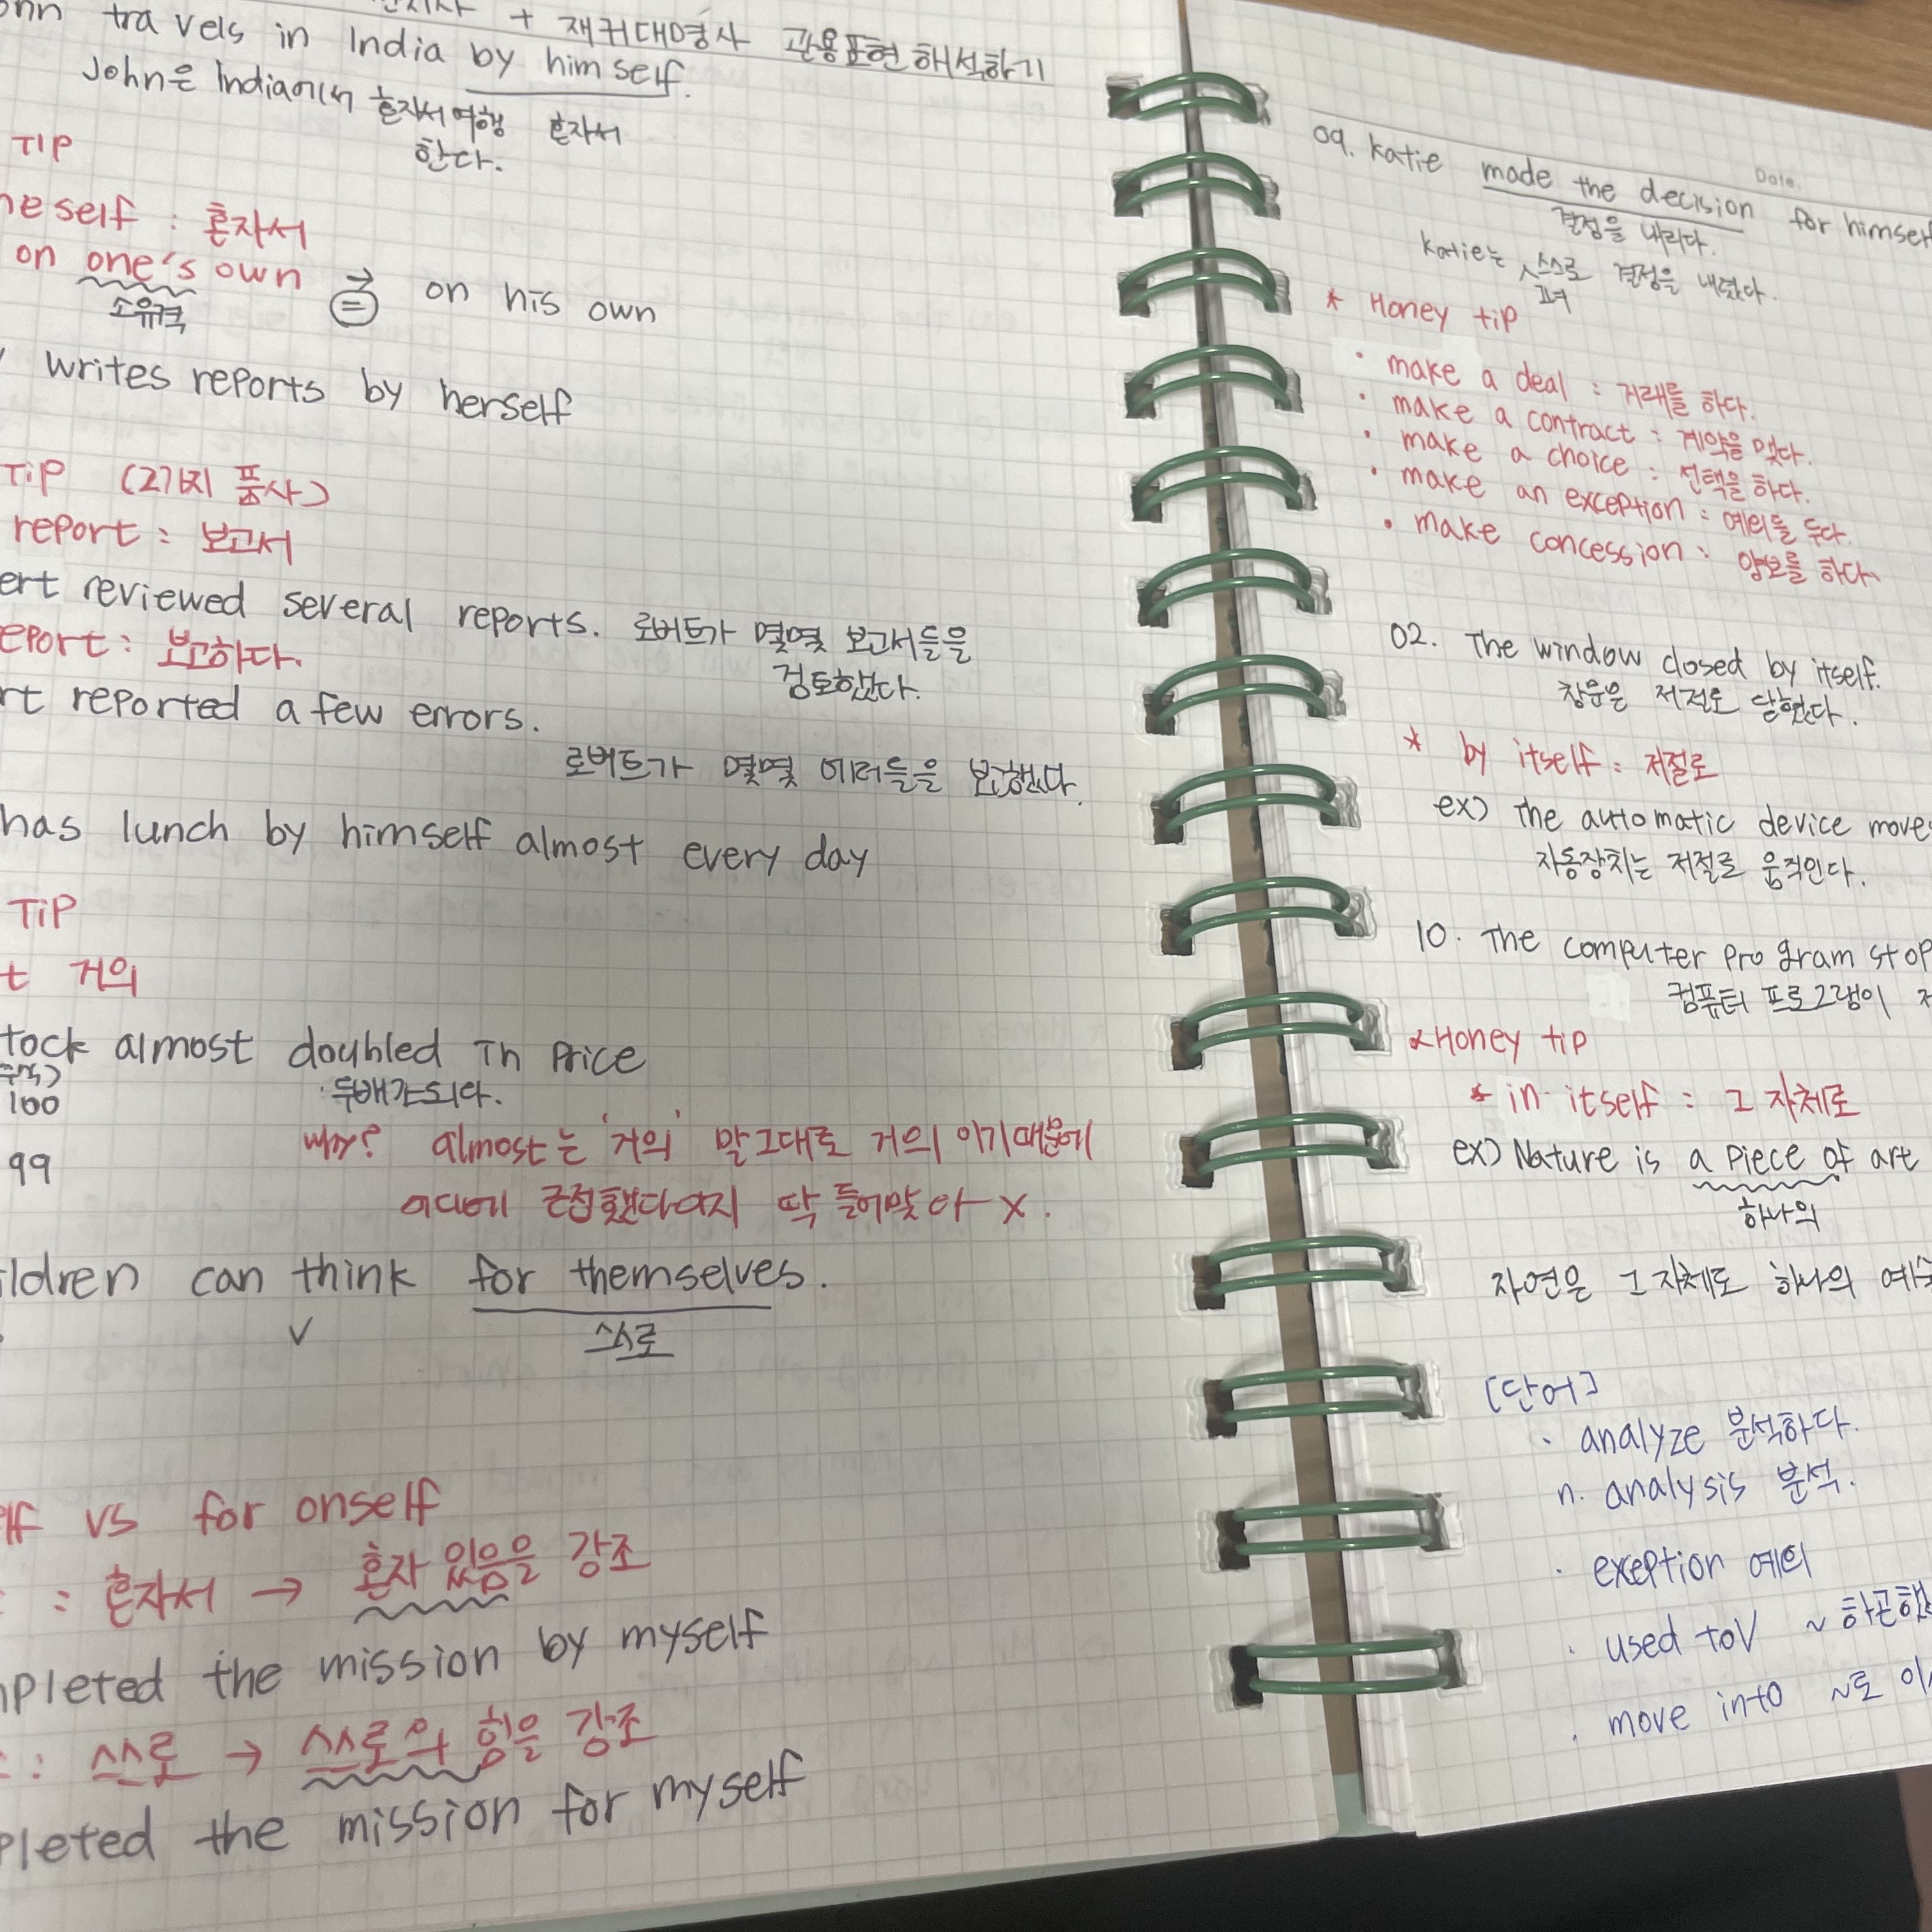 + 재귀대명사 관용표현 해석하기
travels in India by himself.
John은 India에서 혼자서 여행 혼자서
한다.
TIP
: 혼자서
on one's own = on his own
소유격
writes reports by herself
TIP (2가지 품사)
report : 보고서
reviewed several reports. 로버트가 몇몇 보고서들을
검토했다.
: 보고하다.
reported a few errors.
로버트가 몇몇 에러들을 보고했다.
has lunch by himself almost every day
TIP
거의
almost doubled in price
두배가되다.
100
why? almost는 '거의' 말그대로 거의 이기때문에
99
어디에 근접했다이지 딱 들어맞아 X.
can think for themselves.
V 스스로
vs for onself
: 혼자서 → 혼자 있음을 강조
the mission by myself
: 스스로 → 스스로의 힘을 강조
the mission for myself
Date.
09. Katie made the decision for himself
결정을 내리다.
Katie는 스스로 결정을 내렸다.
그녀
* Honey tip
· make a deal : 거래를 하다.
· make a contract : 계약을 맺다.
· make a choice : 선택을 하다.
· make an exception : 예외를 두다.
· make concession : 양보를 하다
02. The window closed by itself.
창문은 저절로 닫혔다.
* by itself : 저절로
ex) The automatic device
자동장치는 저절로 움직인다.
10. The computer program
컴퓨터 프로그램이
*Honey tip
* in itself : 그 자체로
ex) Nature is a piece of art
하나의
자연은 그 자체로 하나의
[단어]
· analyze 분석하다.
n. analysis 분석.
· exeption 예외
· used to V
· move into ~로